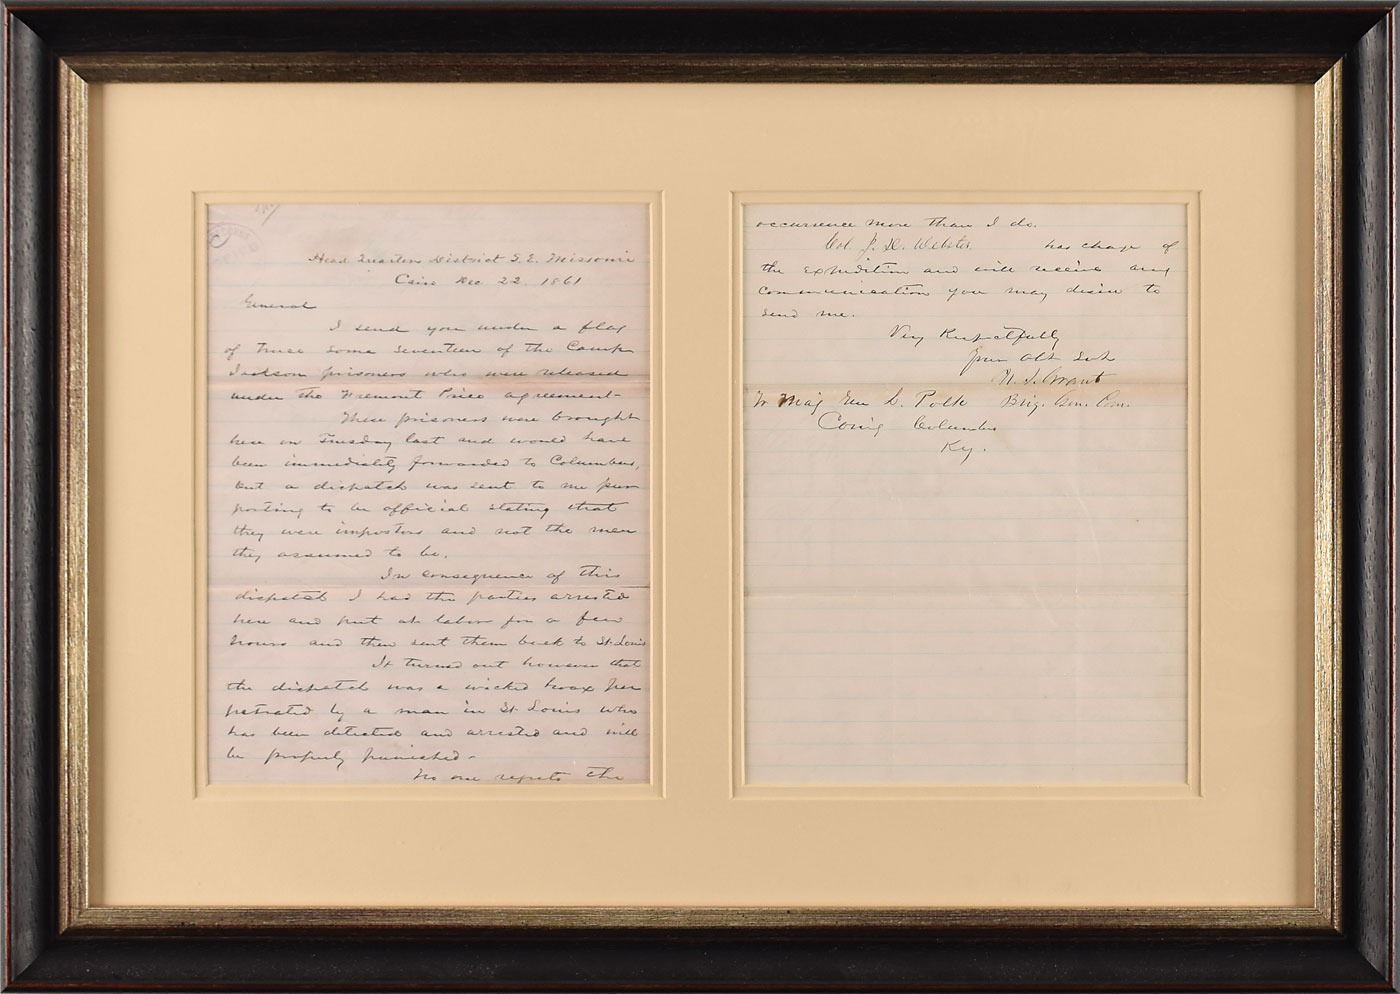 Head Quarters District S.E. Missouri
Cairo Dec 22. 1861
General
I send you under a flag
of truce some seventeen of the Camp
Jackson prisoners who were released
under the Fremont Price agreement-
These prisoners were brought
here on Tuesday last and would have
been immediately forwarded to Columbus,
but a dispatch was sent to me pur
porting to be official stating that
they were impostors and not the men
they assumed to be.
In consequence of this
dispatch I had the parties arrested
here and put at labor for a few
hours and then sent them back to St Louis
It turned out however that
the dispatch was a wicked hoax per
petrated by a man in St Louis who
has been detected and arrested and will
be properly punished-
No one regrets the
occurrence more than I do.
Col J. D. Webster has charge of
the expedition and will receive any
communication you may desire to
send me.
Very Respectfully
Your Obt Svt
U. S. Grant
To Maj Gen L. Polk Brig. Gen. Com.
Com'g Columbus
Ky.